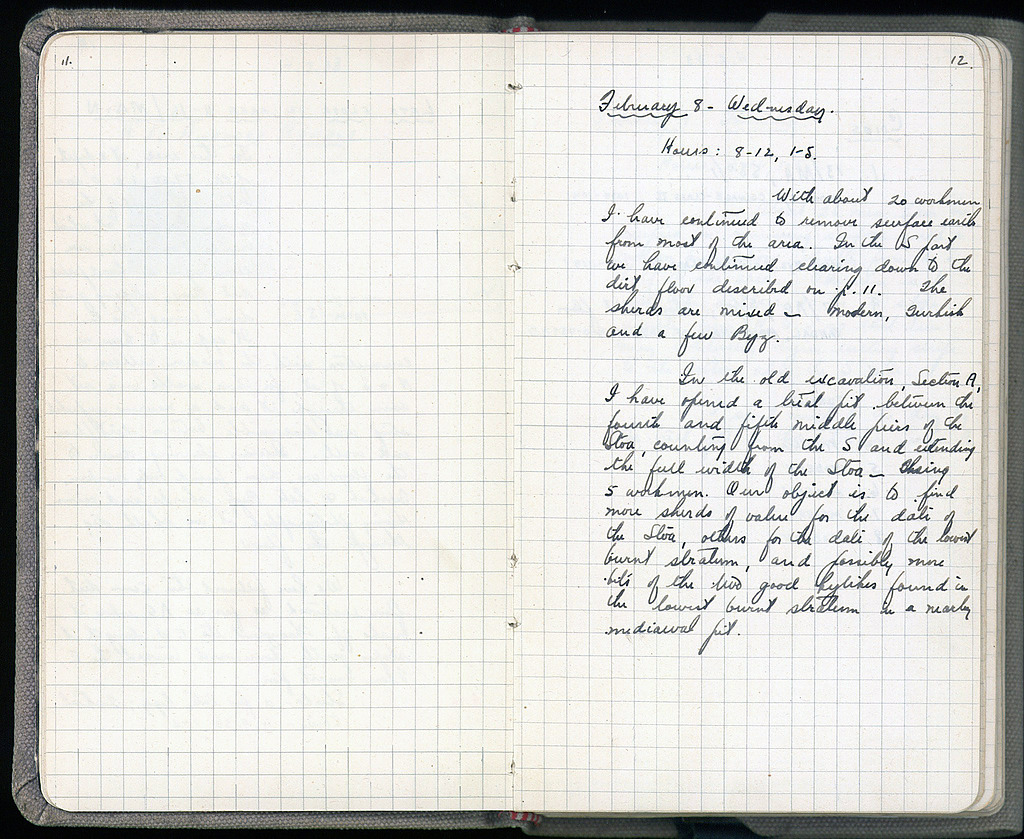 11.
12
February 8 - Wednesday.
Hours: 8-12, 1-5.
With about 20 workmen
I have continued to remove surface earth
from most of the area. In the S part
we have continued clearing down to the
dirt floor described on p. 11. The
sherds are mixed - modern, Turkish
and a few Byz.
In the old excavation, Section A,
I have opened a trial pit between the
fourth and fifth middle piers of the
Stoa, counting from the S and extending
the full width of the Stoa - using
5 workmen. Our object is to find
more sherds of value for the date of
the Stoa, others for the date of the lowest
burnt stratum, and possibly more
bits of the two good kylikes found in
the lowest burnt stratum in a nearby
mediaeval pit.